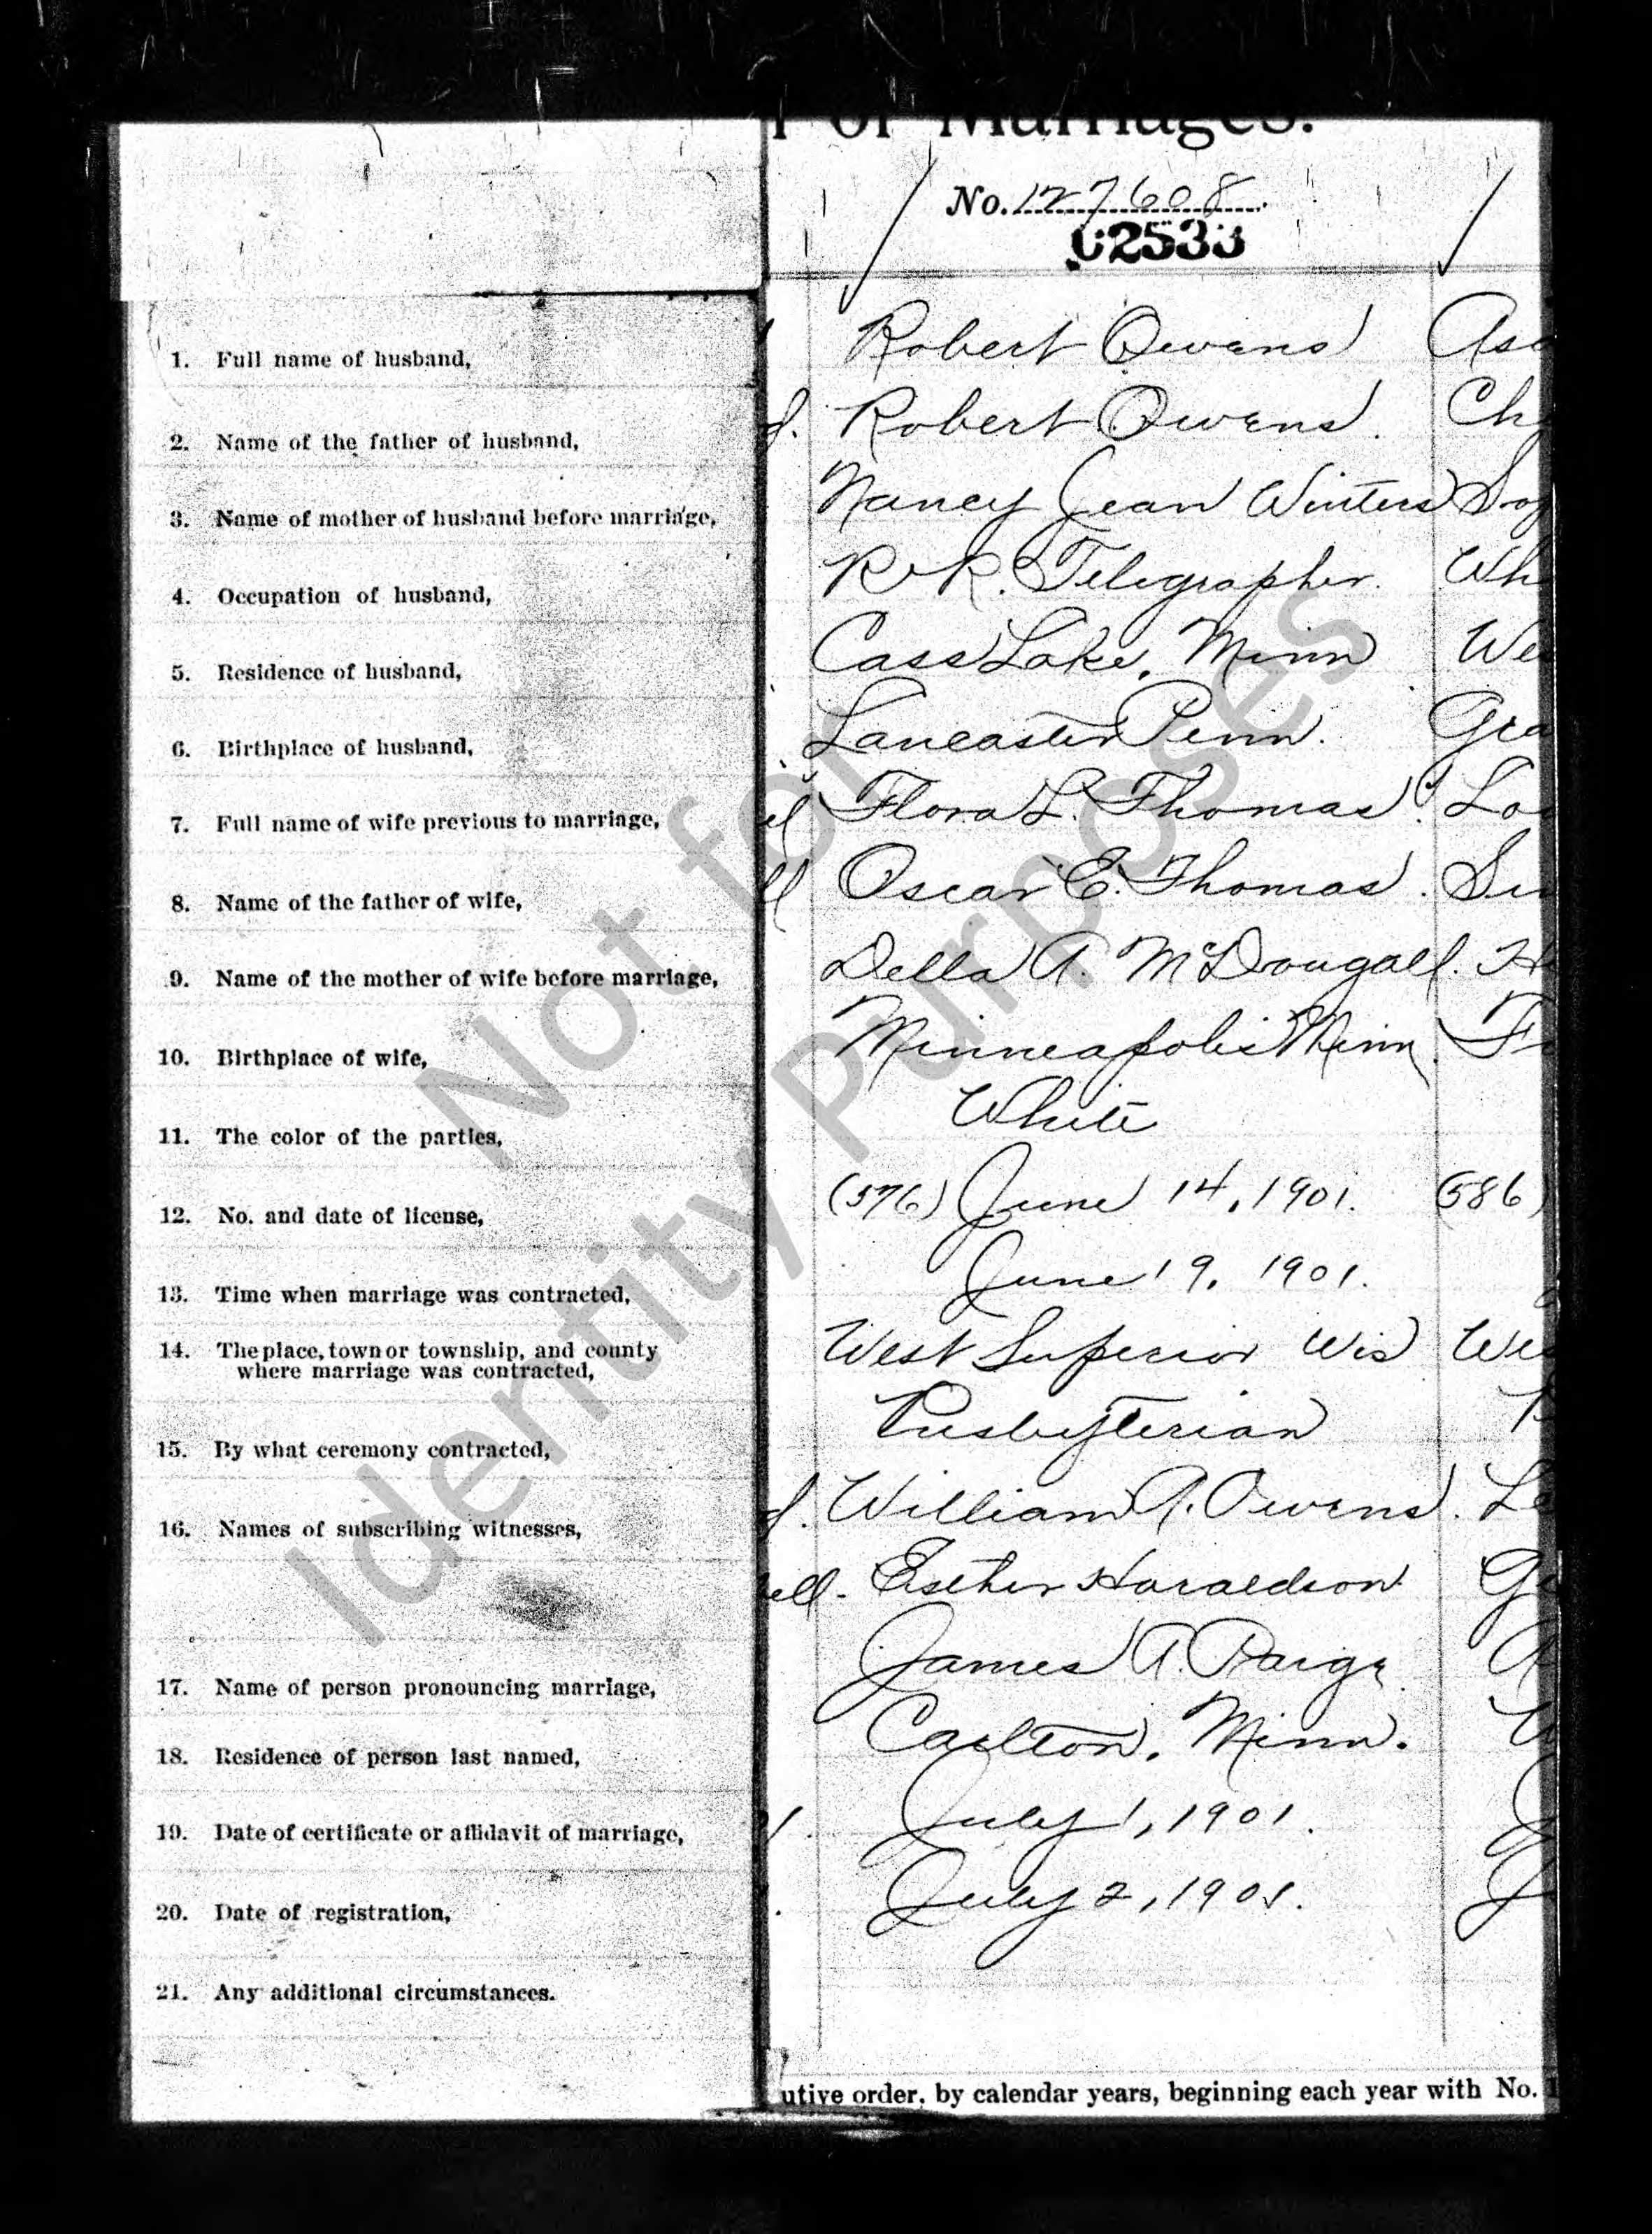 of Marriages.
No. 127608
02533
1. Full name of husband, Robert Owens
2. Name of the father of husband, Robert Owens.
3. Name of mother of husband before marriage, Nancy Jean Winters
4. Occupation of husband, R.R. Telegrapher.
5. Residence of husband, Cass Lake, Minn
6. Birthplace of husband, Lancaster Penn.
7. Full name of wife previous to marriage, Flora L. Thomas.
8. Name of the father of wife, Oscar E. Thomas.
9. Name of the mother of wife before marriage, Della A. McDougall.
10. Birthplace of wife, Minneapolis Minn.
11. The color of the parties, White
12. No. and date of license, (576) June 14, 1901. (586)
13. Time when marriage was contracted, June 19, 1901.
14. The place, town or township, and county
where marriage was contracted, West Superior Wis
15. By what ceremony contracted, Presbyterian
16. Names of subscribing witnesses, William A. Owens.
Esther Haraldson
17. Name of person pronouncing marriage, James A. Paige
18. Residence of person last named, Carlton, Minn.
19. Date of certificate or affidavit of marriage, July 1, 1901.
20. Date of registration, July 2, 1901.
21. Any additional circumstances.
utive order, by calendar years, beginning each year with No. 1
Not for
Identity Purposes